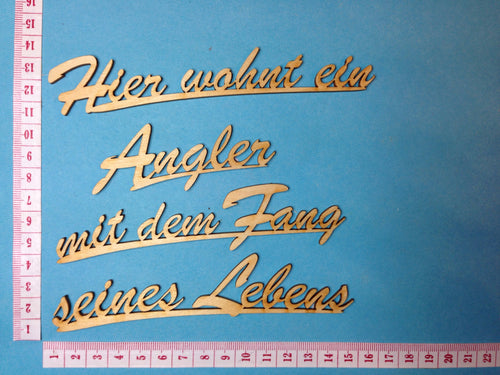 Hier wohnt ein
Angler
mit dem Fang
seines Lebens
16
15
14
13
12
11
10
9
8
7
6
5
4
3
2
1
1 2 3 4 5 6 7 8 9 10 11 12 13 14 15 16 17 18 19 20 21 22